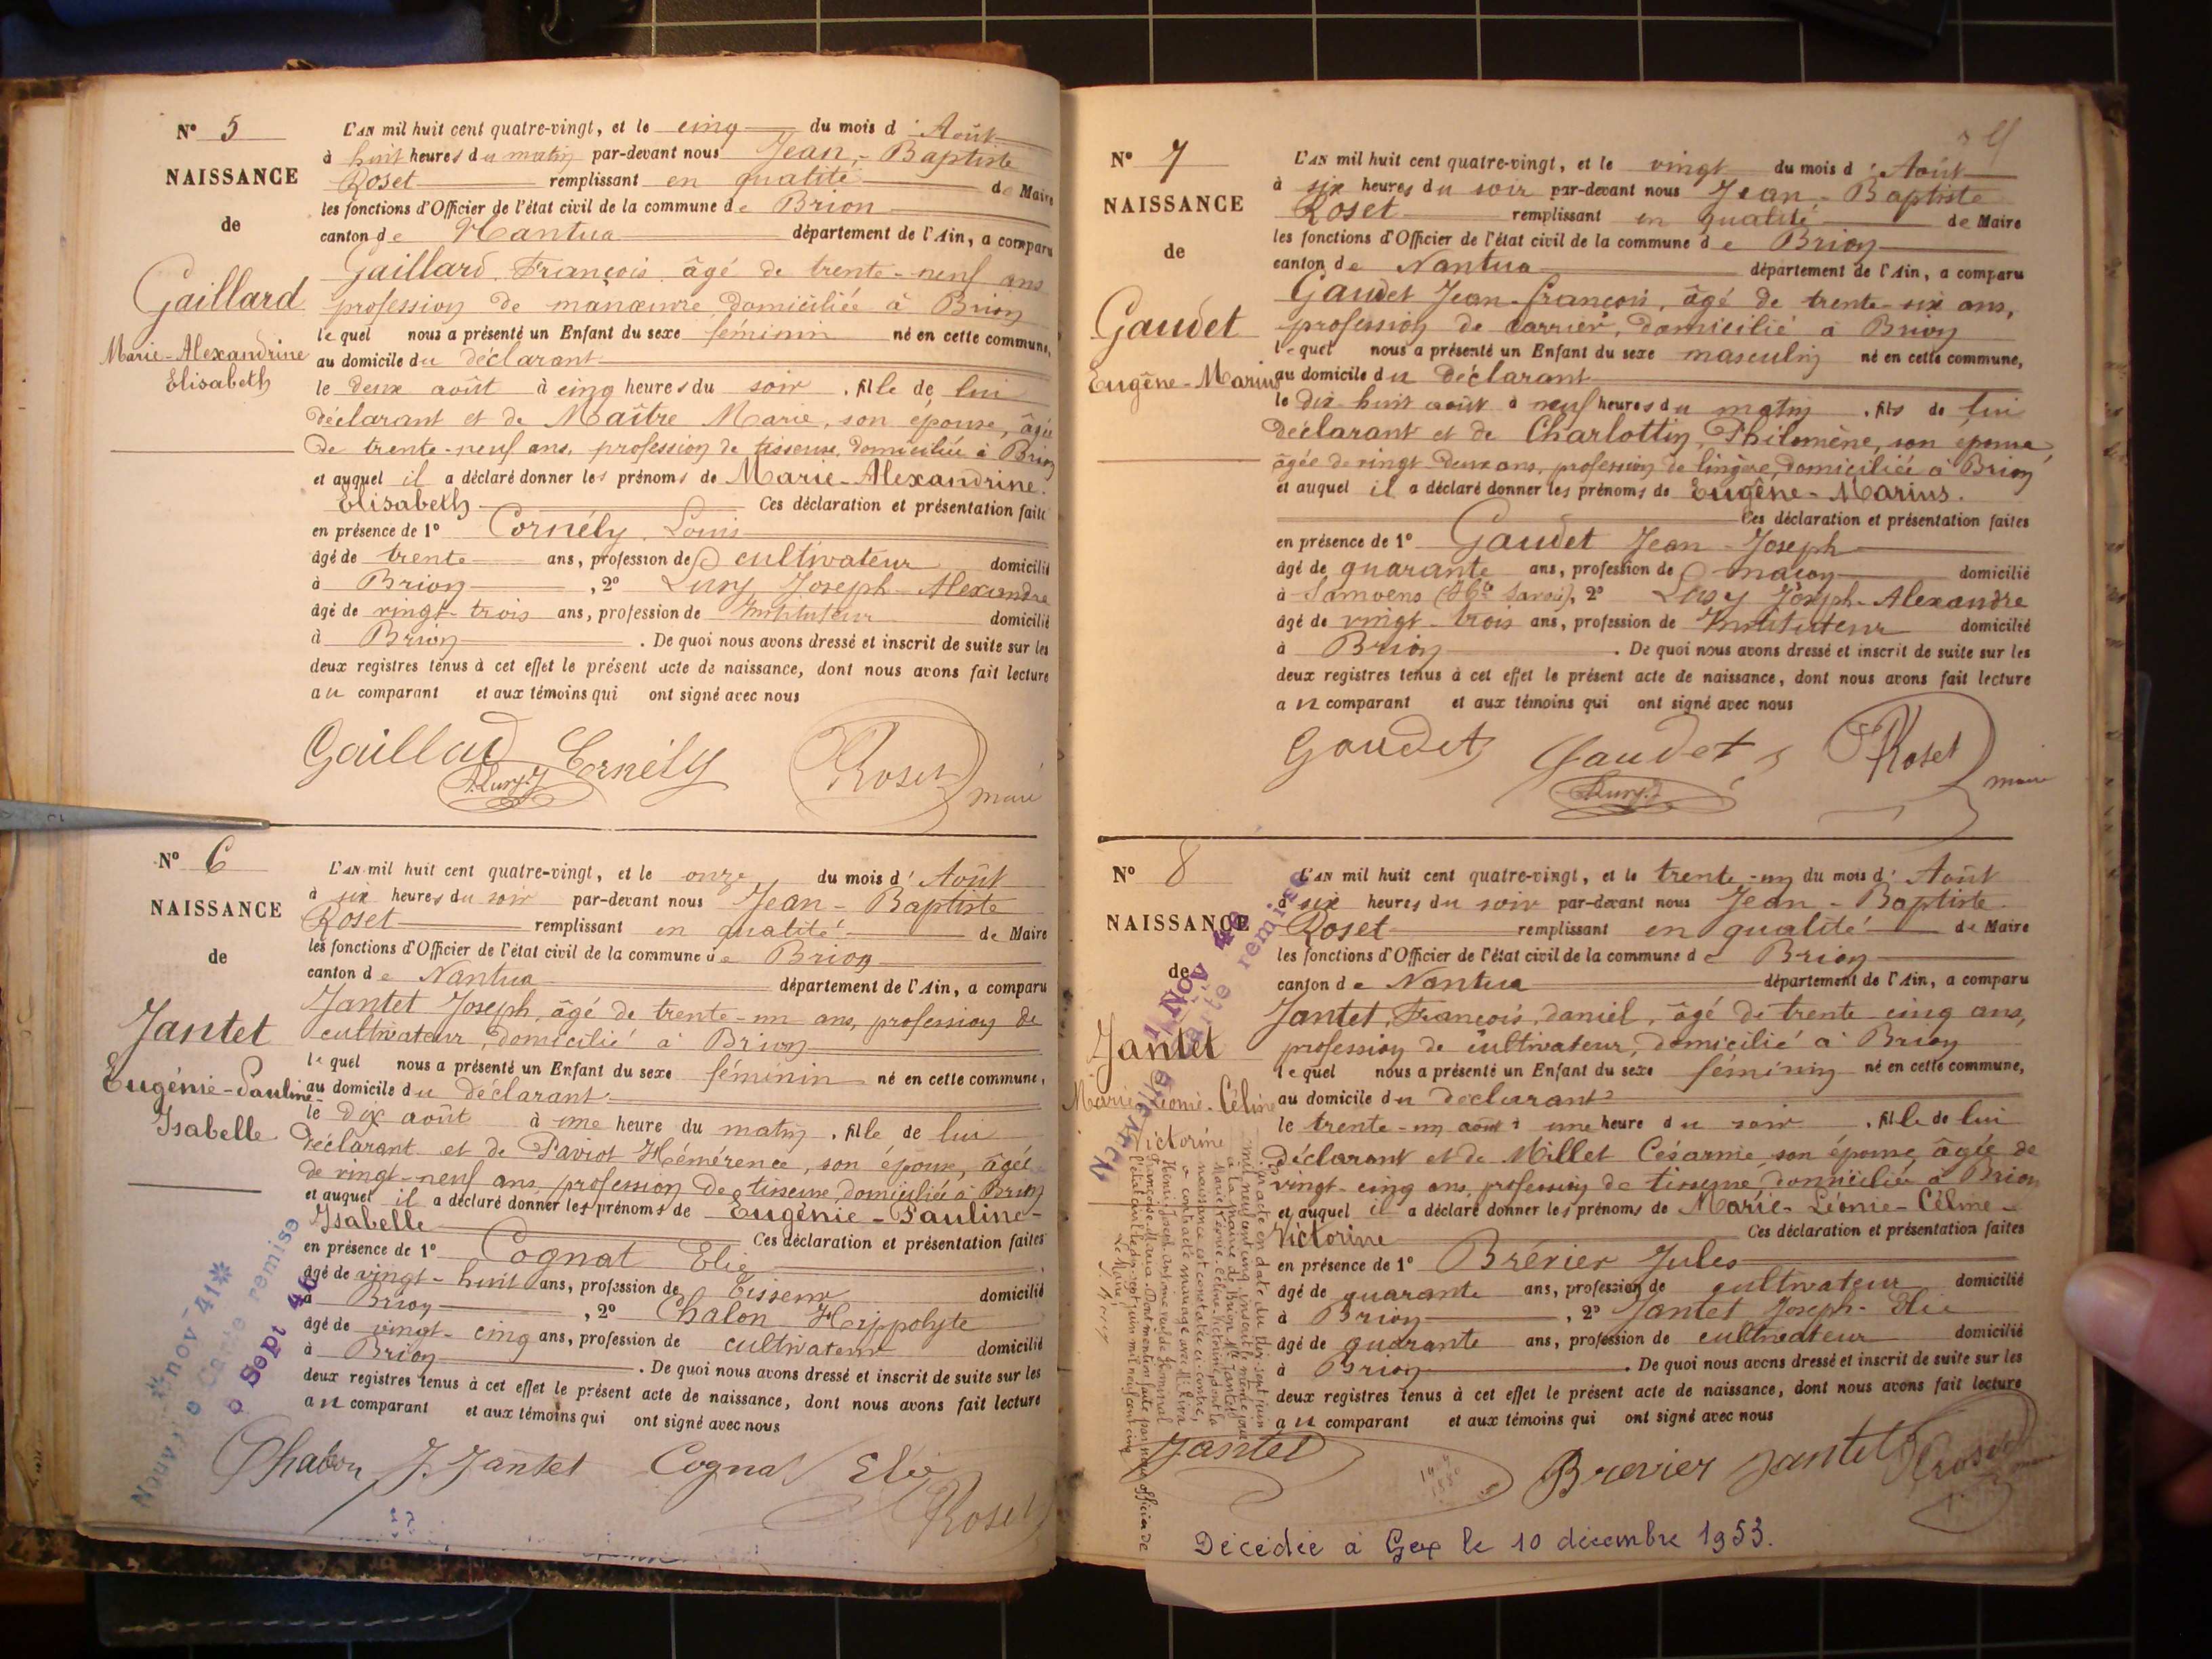 N° 5
NAISSANCE
de
Gaillard
Marie-Alexandrine
Elisabeth
L'AN mil huit cent quatre-vingt, et le cinq du mois d'Août
à huit heures du matin par-devant nous Jean-Baptiste
Roset remplissant en qualité de Maire
les fonctions d'Officier de l'état civil de la commune de Brion
canton de Nantua département de l'Ain, a comparu
Gaillard, François âgé de trente-neuf ans
profession de manœuvre, domiciliée à Brion
lequel nous a présenté un Enfant du sexe féminin né en cette commune,
au domicile du déclarant
le deux août à cinq heures du soir, fille de lui
déclarant et de Maître Marie, son épouse, âgée
de trente-neuf ans, profession de tisseuse, domiciliée à Brion
et auquel il a déclaré donner les prénoms de Marie-Alexandrine.
Elisabeth Ces déclaration et présentation faite
en présence de 1° Cornély, Louis
âgé de trente ans, profession de cultivateur domicilié
à Brion, 2° Lury Joseph-Alexandre
âgé de vingt-trois ans, profession de Instituteur domicilié
à Brion. De quoi nous avons dressé et inscrit de suite sur les
deux registres tenus à cet effet le présent acte de naissance, dont nous avons fait lecture
au comparant et aux témoins qui ont signé avec nous
Gaillard Cornély Roset
Lury J maire
N° 6
NAISSANCE
de
Jantet
Eugénie-Pauline-
Isabelle
L'AN mil huit cent quatre-vingt, et le onze du mois d'Août
à six heures du soir par-devant nous Jean-Baptiste
Roset remplissant en qualité de Maire
les fonctions d'Officier de l'état civil de la commune de Brion
canton de Nantua département de l'Ain, a comparu
Jantet Joseph, âgé de trente-un ans, profession de
cultivateur, domicilié à Brion
lequel nous a présenté un Enfant du sexe féminin né en cette commune,
au domicile du déclarant
le dix août à une heure du matin, fille de lui
déclarant et de Paviot Hémérence, son épouse, âgée
de vingt-neuf ans, profession de tisseuse, domiciliée à Brion
et auquel il a déclaré donner les prénoms de Eugénie-Pauline-
Isabelle Ces déclaration et présentation faites
en présence de 1° Cognat Elie
âgé de vingt-huit ans, profession de Tisseur domicilié
à Brion, 2° Chalon Hippolyte
âgé de vingt-cinq ans, profession de cultivateur domicilié
à Brion. De quoi nous avons dressé et inscrit de suite sur les
deux registres tenus à cet effet le présent acte de naissance, dont nous avons fait lecture
au comparant et aux témoins qui ont signé avec nous
nov 41
Carte remise
Sept 46
Chalon J. Jantet Cognat Elie
Roset
N° 7
NAISSANCE
de
Gaudet
Eugène-Marius
L'AN mil huit cent quatre-vingt, et le vingt du mois d'Août
à six heures du soir par-devant nous Jean-Baptiste
Roset remplissant en qualité de Maire
les fonctions d'Officier de l'état civil de la commune de Brion
canton de Nantua département de l'Ain, a comparu
Gaudet Jean-François, âgé de trente-six ans,
profession de carrier, domicilié à Brion
lequel nous a présenté un Enfant du sexe masculin né en cette commune,
au domicile du déclarant
le dix huit août à neuf heures du matin, fils de lui
déclarant et de Charlottin, Philomène, son épouse,
âgée de vingt-deux ans, profession de lingère, domiciliée à Brion
et auquel il a déclaré donner les prénoms de Eugène-Marius.
Ces déclaration et présentation faites
en présence de 1° Gaudet Jean-Joseph
âgé de quarante ans, profession de maçon domicilié
à Samoens (Hte Savoie), 2° Lury Joseph-Alexandre
âgé de vingt-trois ans, profession de Instituteur domicilié
à Brion. De quoi nous avons dressé et inscrit de suite sur les
deux registres tenus à cet effet le présent acte de naissance, dont nous avons fait lecture
au comparant et aux témoins qui ont signé avec nous
Gaudet Gaudet Roset
Lury J maire
N° 8
NAISSANCE
de
Jantet
Marie-Léonie-Céline
Victorine
L'AN mil huit cent quatre-vingt, et le trente-un du mois d'Août
à six heures du soir par-devant nous Jean-Baptiste
Roset remplissant en qualité de Maire
les fonctions d'Officier de l'état civil de la commune de Brion
canton de Nantua département de l'Ain, a comparu
Jantet, François, daniel, âgé de trente-cinq ans,
profession de cultivateur, domicilié à Brion
lequel nous a présenté un Enfant du sexe féminin né en cette commune,
au domicile du déclarant
le trente-un août à une heure du soir, fille de lui
déclarant et de Millet Césarine, son épouse, âgée de
vingt-cinq ans, profession de tisseuse, domiciliée à Brion
et auquel il a déclaré donner les prénoms de Marie-Léonie-Céline-
Victorine Ces déclaration et présentation faites
en présence de 1° Brévier Jules
âgé de quarante ans, profession de cultivateur domicilié
à Brion, 2° Jantet Joseph-Elie
âgé de quarante ans, profession de cultivateur domicilié
à Brion. De quoi nous avons dressé et inscrit de suite sur les
deux registres tenus à cet effet le présent acte de naissance, dont nous avons fait lecture
au comparant et aux témoins qui ont signé avec nous
Nov
remise
par acte en date du dix-sept juin
mil neuf cent cinq, inscrit le même jour
à la mairie de Brion, Mlle Jantet
a contracté mariage avec
Le Maire,
Jantet Brevier Jantet Roset
Décédée à Gex le 10 décembre 1953.